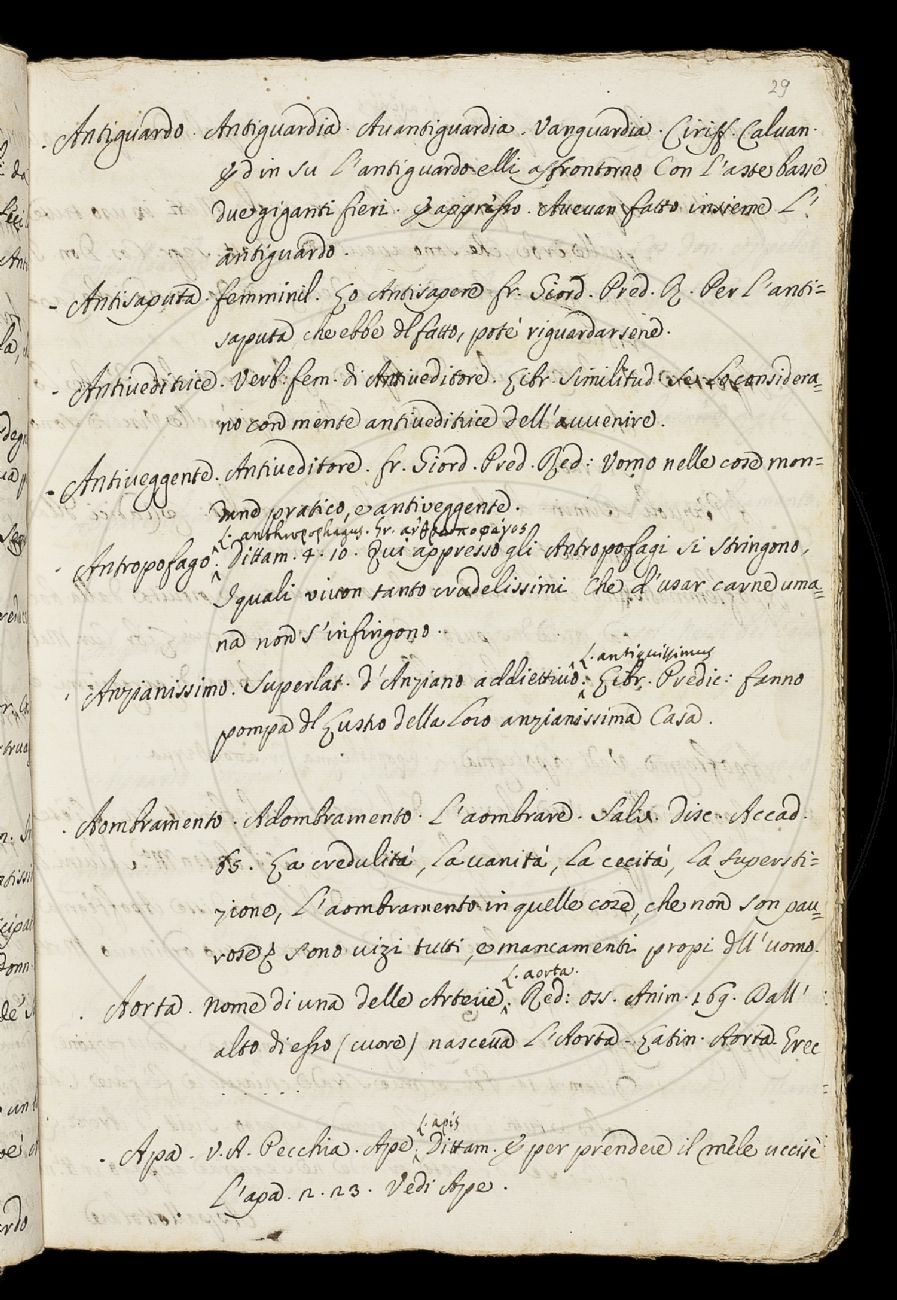 29
Antiguardo. Antiguardia. Avantiguardia. Vanguardia. Ciriff. Calvan.
Ed in su l'antiguardo elli affrontorno Con l'aste basse
due giganti fieri. E appresso. Avevan fatto insieme l'
antiguardo.
Antisaputa. femminil. Lo Antisapere fr. Giord. Pred. R. Per l'anti=
saputa che ebbe del fatto, potè riguardarsene.
Antiveditrice. Verb. fem. di Antiveditore. Libr. Similitud. Se lo considera=
no con mente antiveditrice dell'avvenire.
Antiveggente. Antiveditore. fr. Giord. Pred. Red: Vomo nelle cose mon=
dane pratico, e antiveggente.
L. anthropophagus. Gr. ἀνθρωποφάγος
Antropofago. Dittam. 4. 10. Qui appresso gli Antropofagi si stringono,
I quali vivon tanto crudelissimi Che d'usar carne uma=
na non s'infingono.
L. antiquissimus
Anzianissimo. Superlat. d'Anziano addiettivo. Libr. Predic: fanno
pompa del Lustro della loro anzianissima Casa.
Aombramento. Adombramento. L'aombrare. Salv. Disc. Accad.
65. La credulità, la vanità, la cecità, la supersti=
zione, l'aombramento in quelle cose, che non son pau=
rose; sono vizi tutti, e mancamenti propi dell'uomo.
L. aorta.
Aorta. Nome di una delle Arterie. Red: oss. Anim. 169. Dall'
alto di esso (cuore) nasceva l'Aorta. Latin. Aorta. Grec
L. apis
Apa. V. A. Pecchia. Ape. Dittam. E per prendere il mele uccise
L'apa. 2. 23. Vedi Ape.